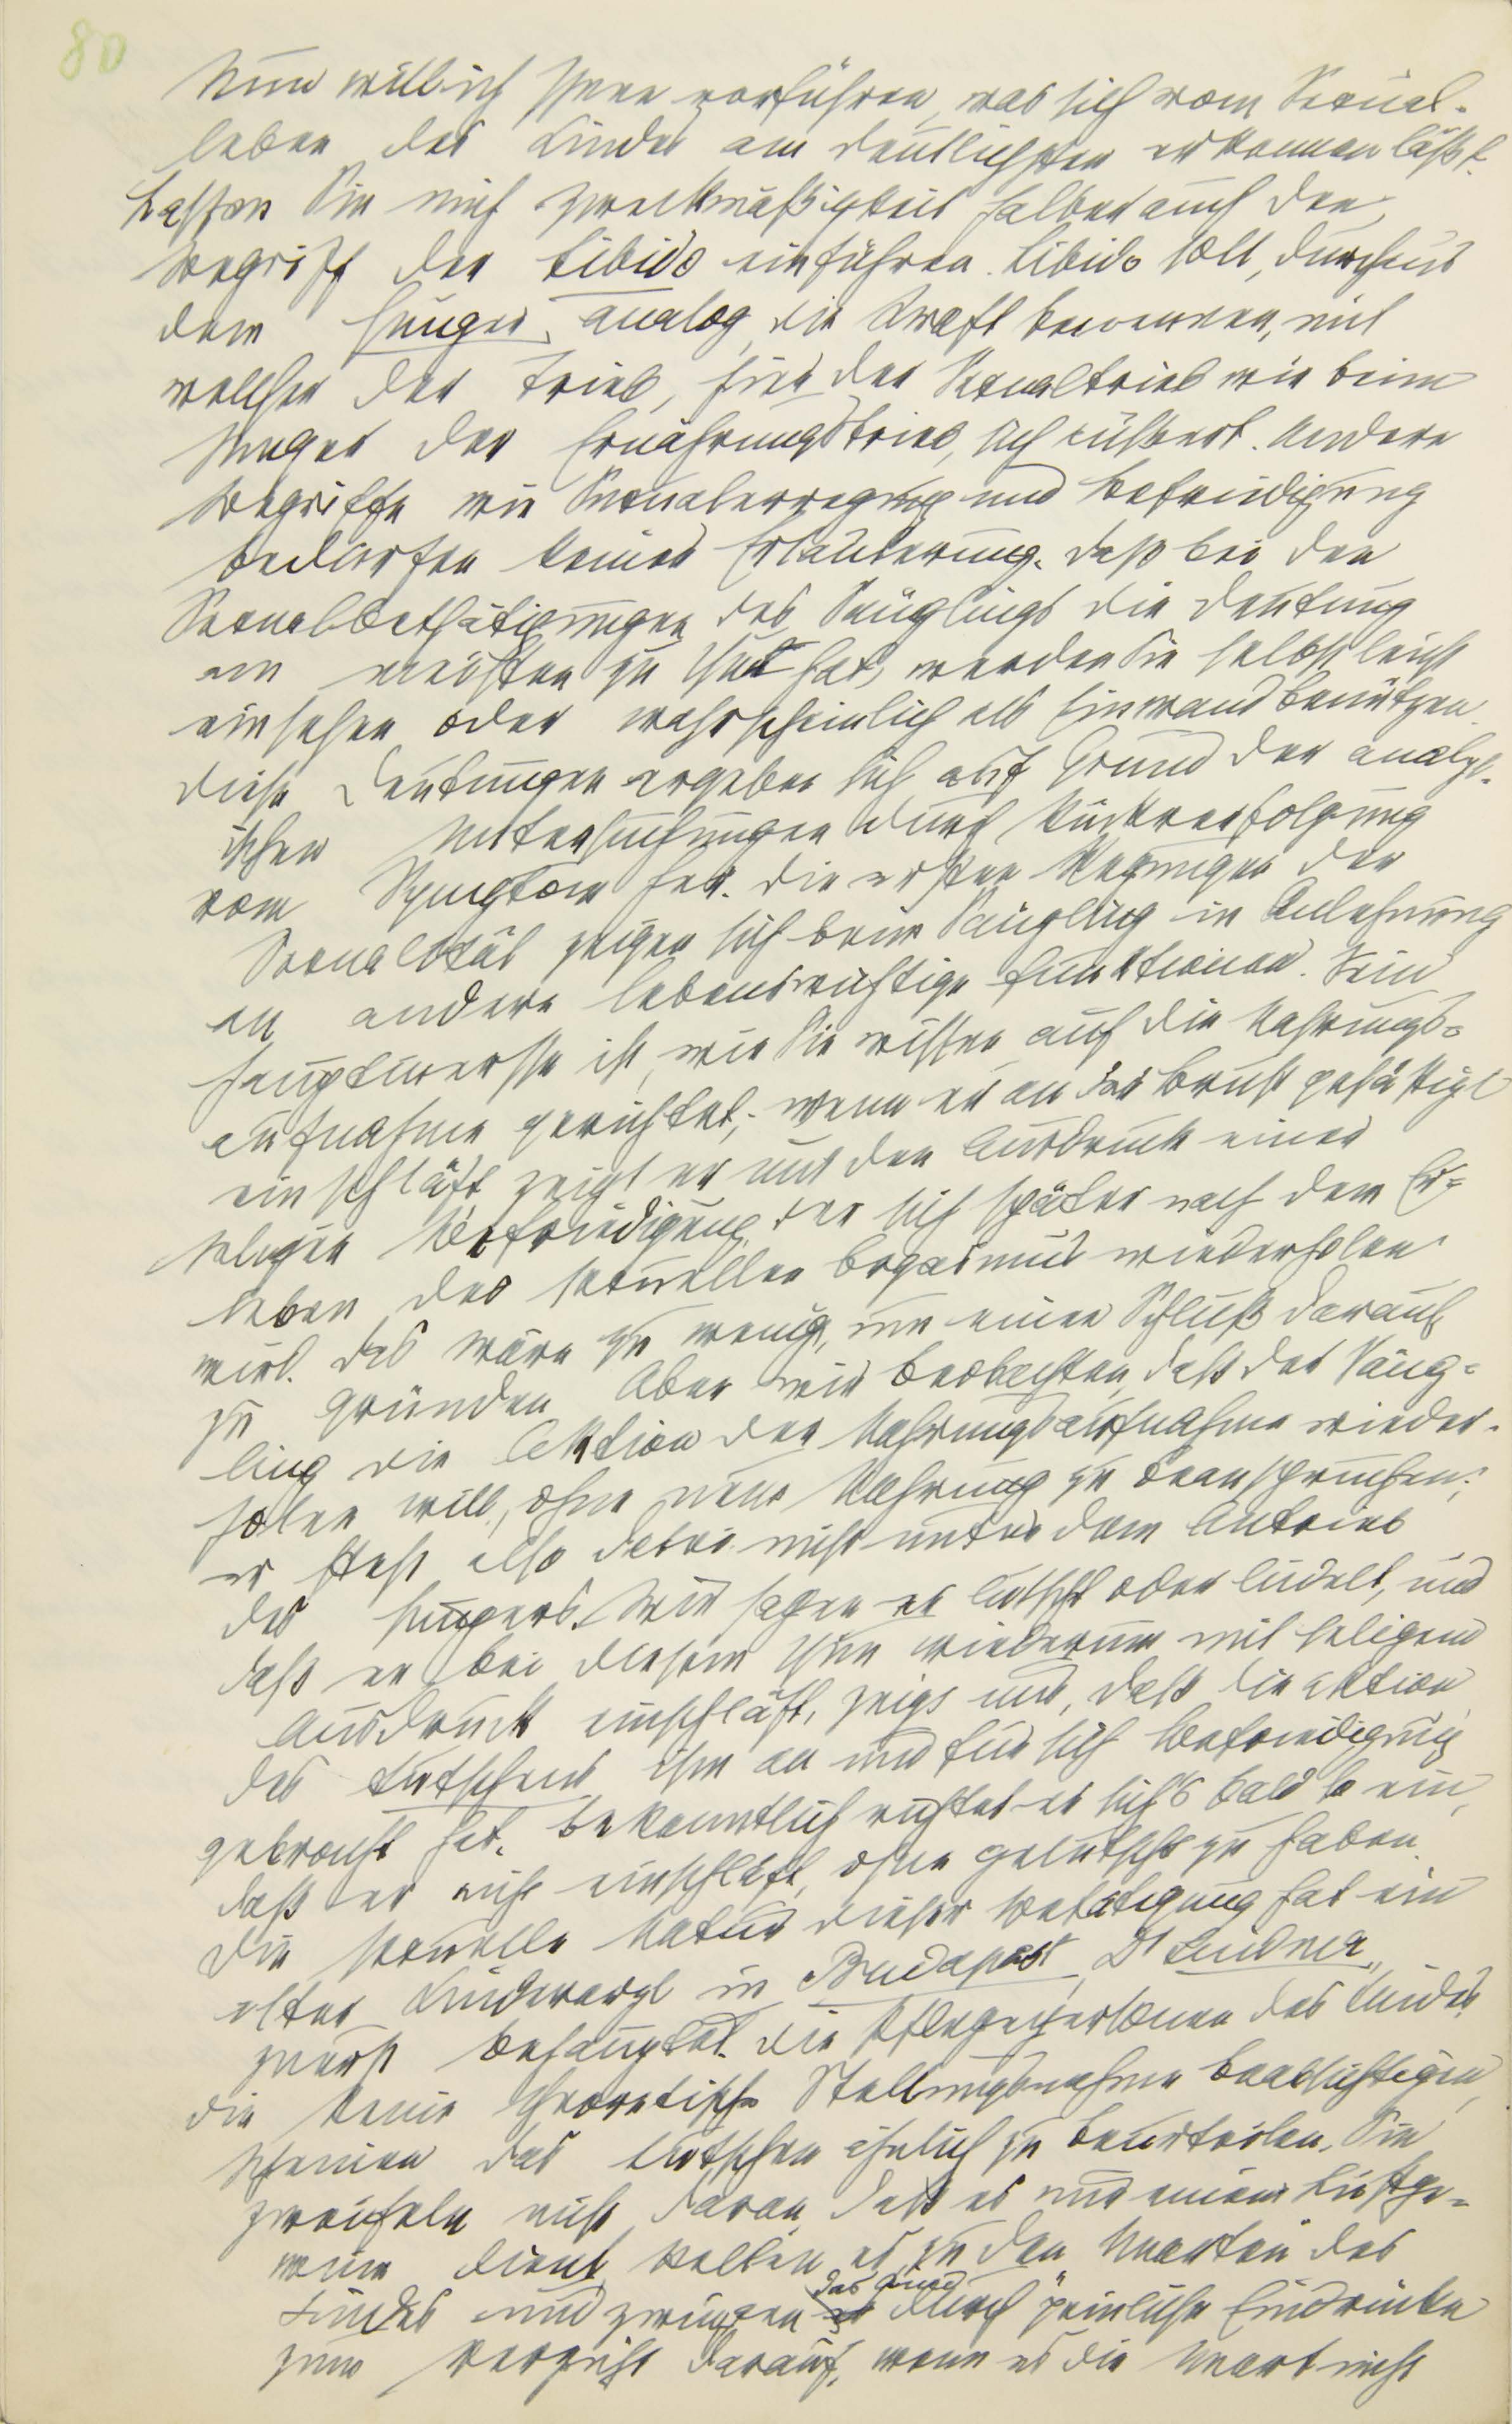 80
Nun will ich Ihnen vorführen, was sich vom Sexual-
leben des Kindes am deutlichsten erkennen läßt.
Lassen Sie mich zweckmäßigkeits halber auch den
Begriff der Libido einführen. Libido soll, durchaus
dem Hunger analog, die Kraft benennen, mit
welcher der Trieb, hier der Sexualtrieb wie beim
Hunger der Ernährungstrieb, sich äußert. Andere
Begriffe wie Sexualerregung und Befriedigung
bedürfen keiner Erläuterung. Daß bei den
Sexualbethätigungen des Säuglings die Deutung
am meisten zu thun hat, werden Sie selbst leicht
einsehen oder wahrscheinlich als Einwand benützen.
Diese Deutungen ergeben sich auf Grund der analyt-
ischen Untersuchungen durch Rückverfolgung
vom Symptom her. Die ersten Regungen der
Sexualität zeigen sich beim Säugling in Anlehnung
an andere lebenswichtige Funktionen. Sein
Hauptinteresse ist, wie Sie wissen auf die Nahrungs-
aufnahme gerichtet; wenn er an der Brust gesättigt
einschläft, zeigt er uns den Ausdruck einer
seligen Befriedigung, der sich später nach dem Er-
leben des sexuellen Orgasmus wiederholen
wird. Das wäre zu wenig, um einen Schluß darauf
zu gründen. Aber wir beobachten, daß der Säug-
ling die Aktion der Nahrungsaufnahme wieder-
holen will, ohne neue Nahrung zu beanspruchen;
er steht also dabei nicht unter dem Antrieb
des Hungers. Wir sagen er lutscht oder ludelt, und
daß er bei diesem Thun wiederum mit seligem
Ausdruck einschläft, zeigt uns, daß die Aktion
des Lutschens ihm an und für sich Befriedigung
gebracht hat. Bekanntlich richtet er sich's bald so ein,
daß er nicht einschläft, ohne gelutscht zu haben.
Die sexuelle Natur dieser Betätigung hat ein
alter Kinderarzt in Budapest, Dr Lindner,
zuerst behauptet. Die Pflegepersonen des Kindes,
die keine theoretische Stellungnahme beabsichtigen,
scheinen das Lutschen ähnlich zu beurteilen. Sie
zweifeln nicht daran, daß es nur einem Lustge-
winn dient, stellen es zu den Unarten des
Kindes und zwingen das Kind durch peinliche Eindrücke
zum Verzicht darauf, wenn es die Unart nicht